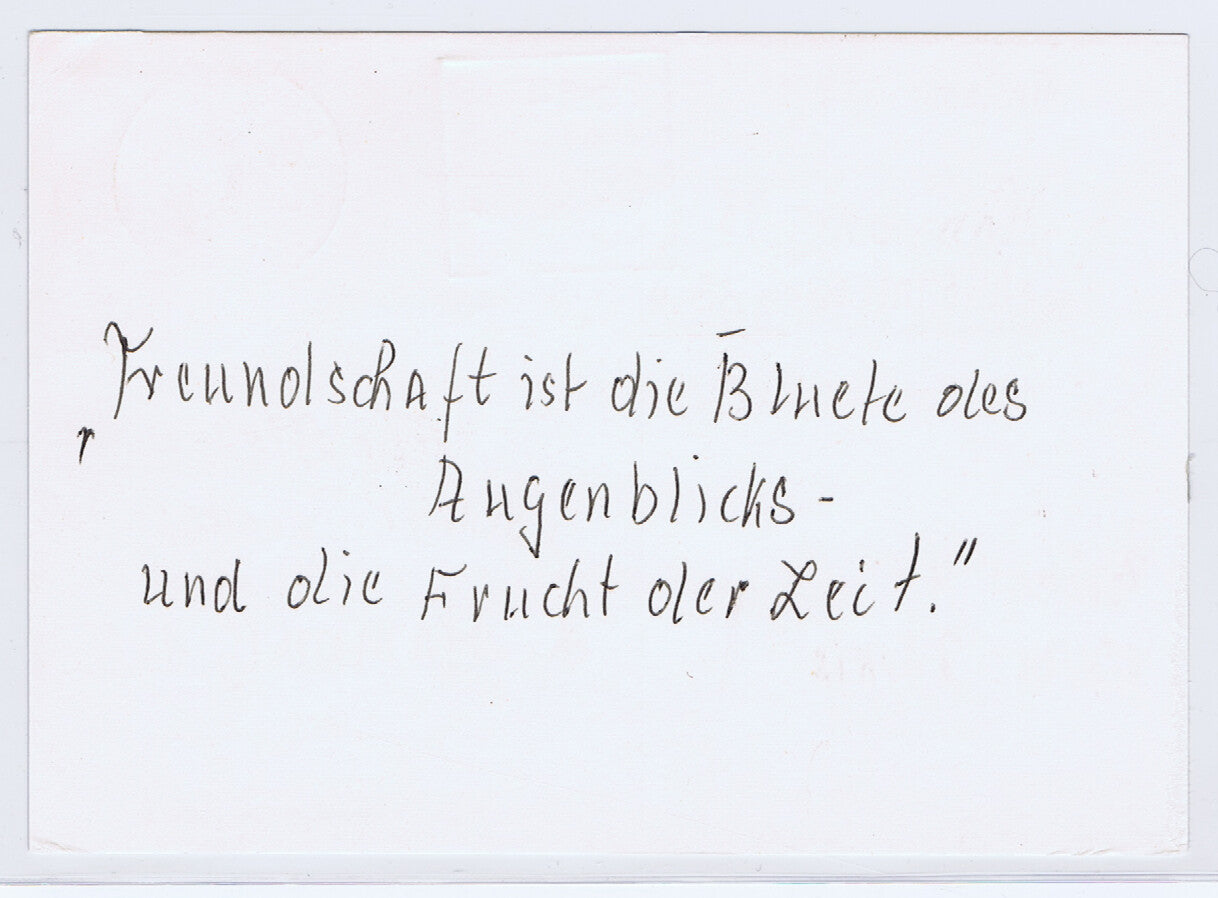 „Freundschaft ist die Bluete des
Augenblicks -
und die Frucht der Zeit."